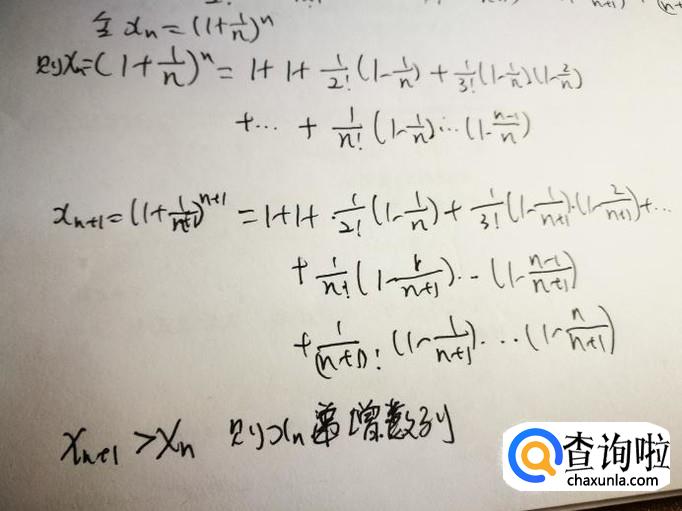 令 xₙ = (1+1/n)ⁿ
则xₙ = (1+1/n)ⁿ = 1+1+1/2!(1-1/n)+1/3!(1-1/n)(1-2/n)
+⋯+1/n!(1-1/n)⋯(1-(n-1)/n)
xₙ₊₁ = (1+1/(n+1))ⁿ⁺¹ = 1+1+1/2!(1-1/n)+1/3!(1-1/(n+1))·(1-2/(n+1))+⋯
+1/n!(1-1/(n+1))⋯(1-(n-1)/(n+1))
+1/(n+1)!(1-1/(n+1))⋯(1-n/(n+1))
xₙ₊₁ > xₙ 则xₙ 增数列
查询啦
chaxunla.com